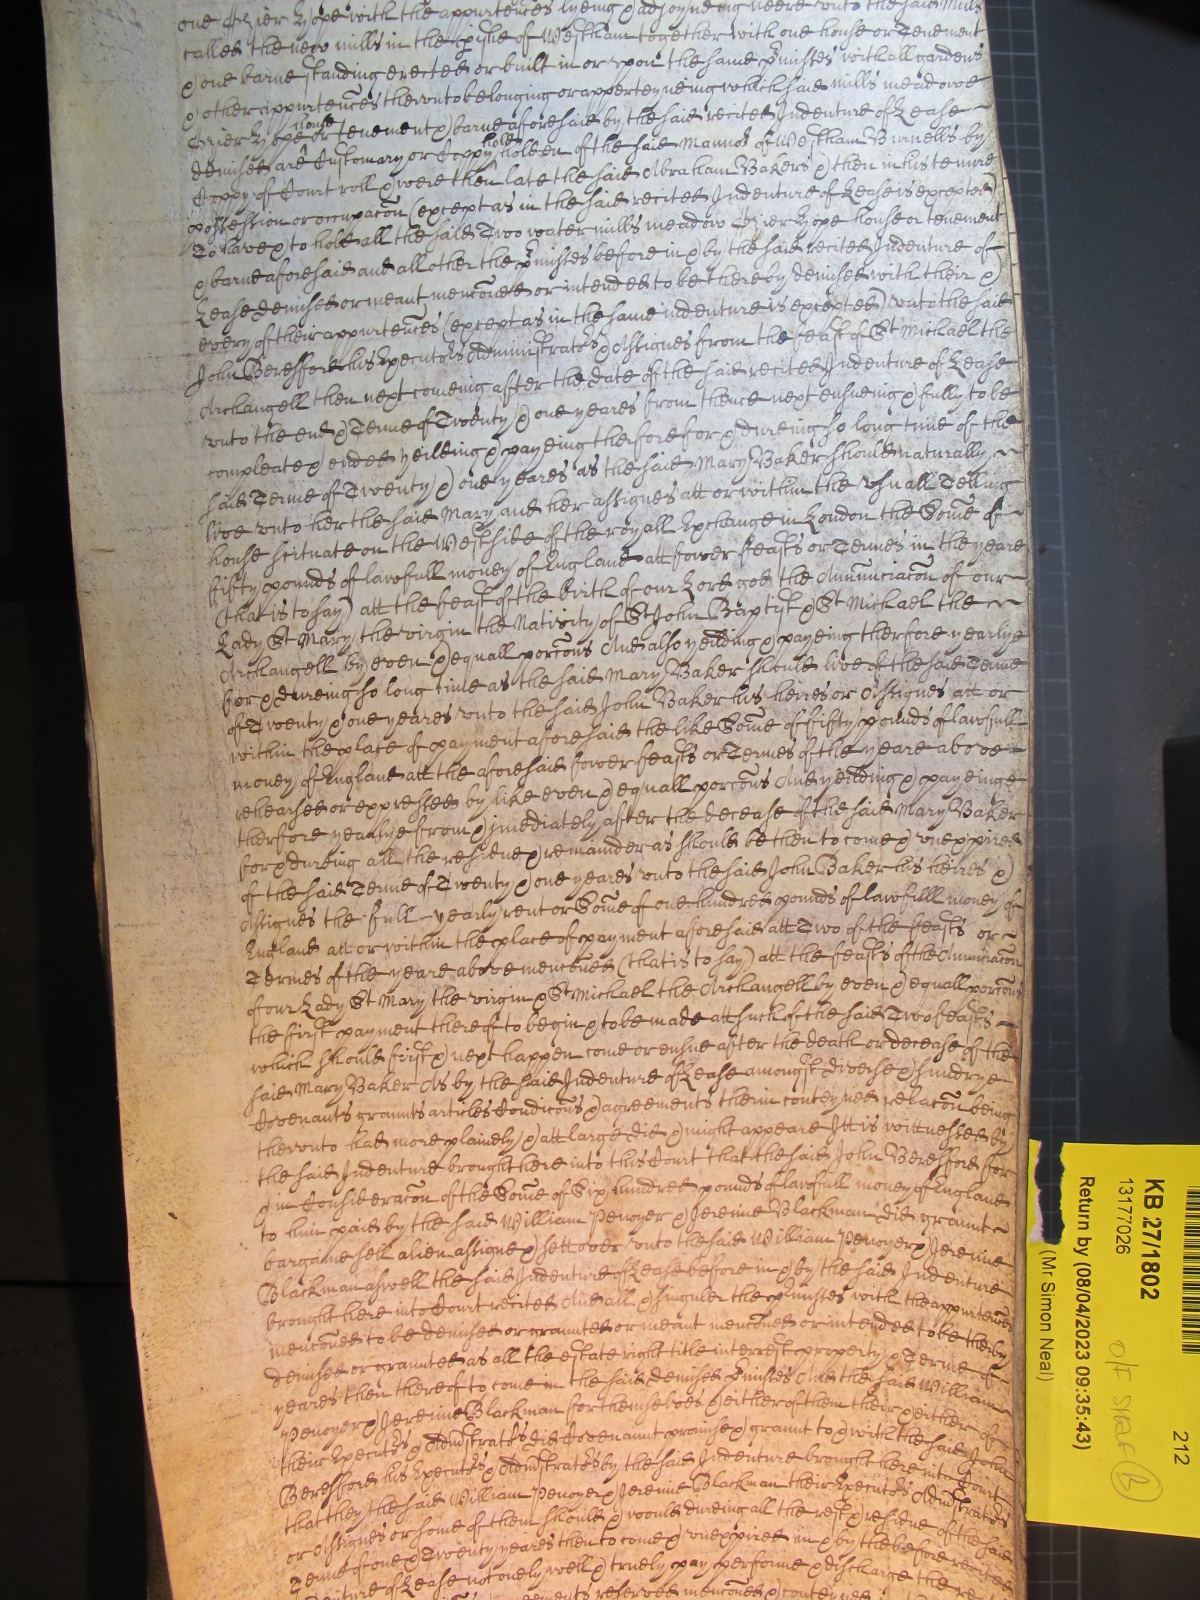 one Ozier Hope with the appurtenċes lyeing & adjoyneing neere vnto the said Mills
called the new mills in the pishe of Westham together with one house or Tenement
& one barne standing erected or built in or vpon the same pmisses with all gardens
& other appurtenċes thervnto belonging or apperteyneing which said mills meadowe
Ozier Hope house or tenement & barne aforesaid by the said recited Indenture of Lease
demised are Customary or Coppy hold holden of the said Mannor of Westham Burnells by
Coppy of Court roll & were then late the said Abraham Bakers & then in his tenure
possession or occupacōn (except as in the said recited Indenture of Lease is excepted)
To have & to hold all the said Two water mills meadow Ozier Hope house or tenement
& barne aforesaid and all other the pmisses before in & by the said recited Indenture of
Lease demised or meant menc̄oned or intended to be thereby demised with their &
every of their appurtenċes (except as in the same indenture is excepted) vnto the said
John Beresford his Executors Administrators & Assignes from the feast of St Michaell the
Archangell then next comeing after the date of the said recited Indenture of Lease
vnto the end & Terme of Twenty & one yeares from thence next ensueing & fully to be
compleate & ended yeilding & payeing therfore for & dureing so long time of the
said Terme of Twenty & one yeares as the said Mary Baker should naturally
live vnto her the said Mary and her assignes att or within the vsuall Telling
house scituate on the West side of the royall Exchange in London the Some of
fifty pounds of lawfull money of England att fower feasts or Termes in the yeare
(that is to say) att the feast of the birth of our Lord god the Annunciacōn of our
Lady St Mary the virgin the Nativity of St John Baptist & St Michael the
Archangell by even & equall porc̄ons And also yeilding & payeing therfore yearlye
for & dureing so long time as the said Mary Baker should live of the said Terme
of Twenty & one yeares vnto the said John Baker his heires or Assignes att or
within the place of payment aforesaid the like Some of fifty pounds of lawfull
money of England att the aforesaid fower feasts or Termes of the yeare above
rehearsed or expressed by like even & equall porc̄ons And yeilding & payeinge
therfore yearlye from & im̄ediately after the decease of the said Mary Baker
for & dureing all the residue & remainder as should be then to come & vnexpired
of the said Terme of Twenty & one yeares vnto the said John Baker his heires &
Assignes the full yearly rent or Some of one hundred pounds of lawfull money of
England att or within the place of payment aforesaid att Two of the feasts or
Termes of the yeare above menc̄oned (that is to say) att the feasts of the Annunciacōn
of our Lady St Mary the virgin & St Michael the Archangell by even & equall porc̄ons
the first payment thereof to begin & to be made att such of the said Two feasts
which should first & next happen come or ensue after the death or decease of the
said Mary Baker As by the said Indenture of Lease amongst diverse & sundrye
Covenants graunts articles Condic̄ons & agreements therin conteyned relacōn being
thervnto had more plainely & att large did & might appeare Itt is wittnessed by
the said Indenture brought here into this Court that the said John Beresford for
& in Considerac̄on of the Some of Six hundred pounds of lawfull money of England
to him paid by the said William Penoyer & Jeremie Blackman did graunt
bargaine sell alien assigne & sett over vnto the said William Penoyer & Jeremie
Blackman aswell the said Indenture of Lease before in & by the said Indenture
brought here into Court recited And all & singuler the pmisses with the appurtenċes
menc̄oned to be demised or graunted or meant menc̄oned or intended to be therby
demised or graunted as all the estate right title interest property & Terme of
yeares then thereof to come in the said demised pmisses And the said William
Penoyer & Jeremie Blackman for themselves & either of them their & either of
their Executors & Administrators did Covenant promise & graunt to & with the said John
Beresford his Executors & Administrators by the said Indenture brought here into Court
that they the said William Penoyer & Jeremie Blackman their Executors Administrators
or Assignes or some of them should & would dureing all the rest & residue of the said
Terme of one & Twenty yeares then to come & vnexpired in & by the before recited
Indenture of Lease not onely well & truely pay performe & discharge the rent
reserved menc̄oned & conteyned
KB 27/1802
13177026
Return by (08/04/2023 09:35:43)
(Mr Simon Neal)
212